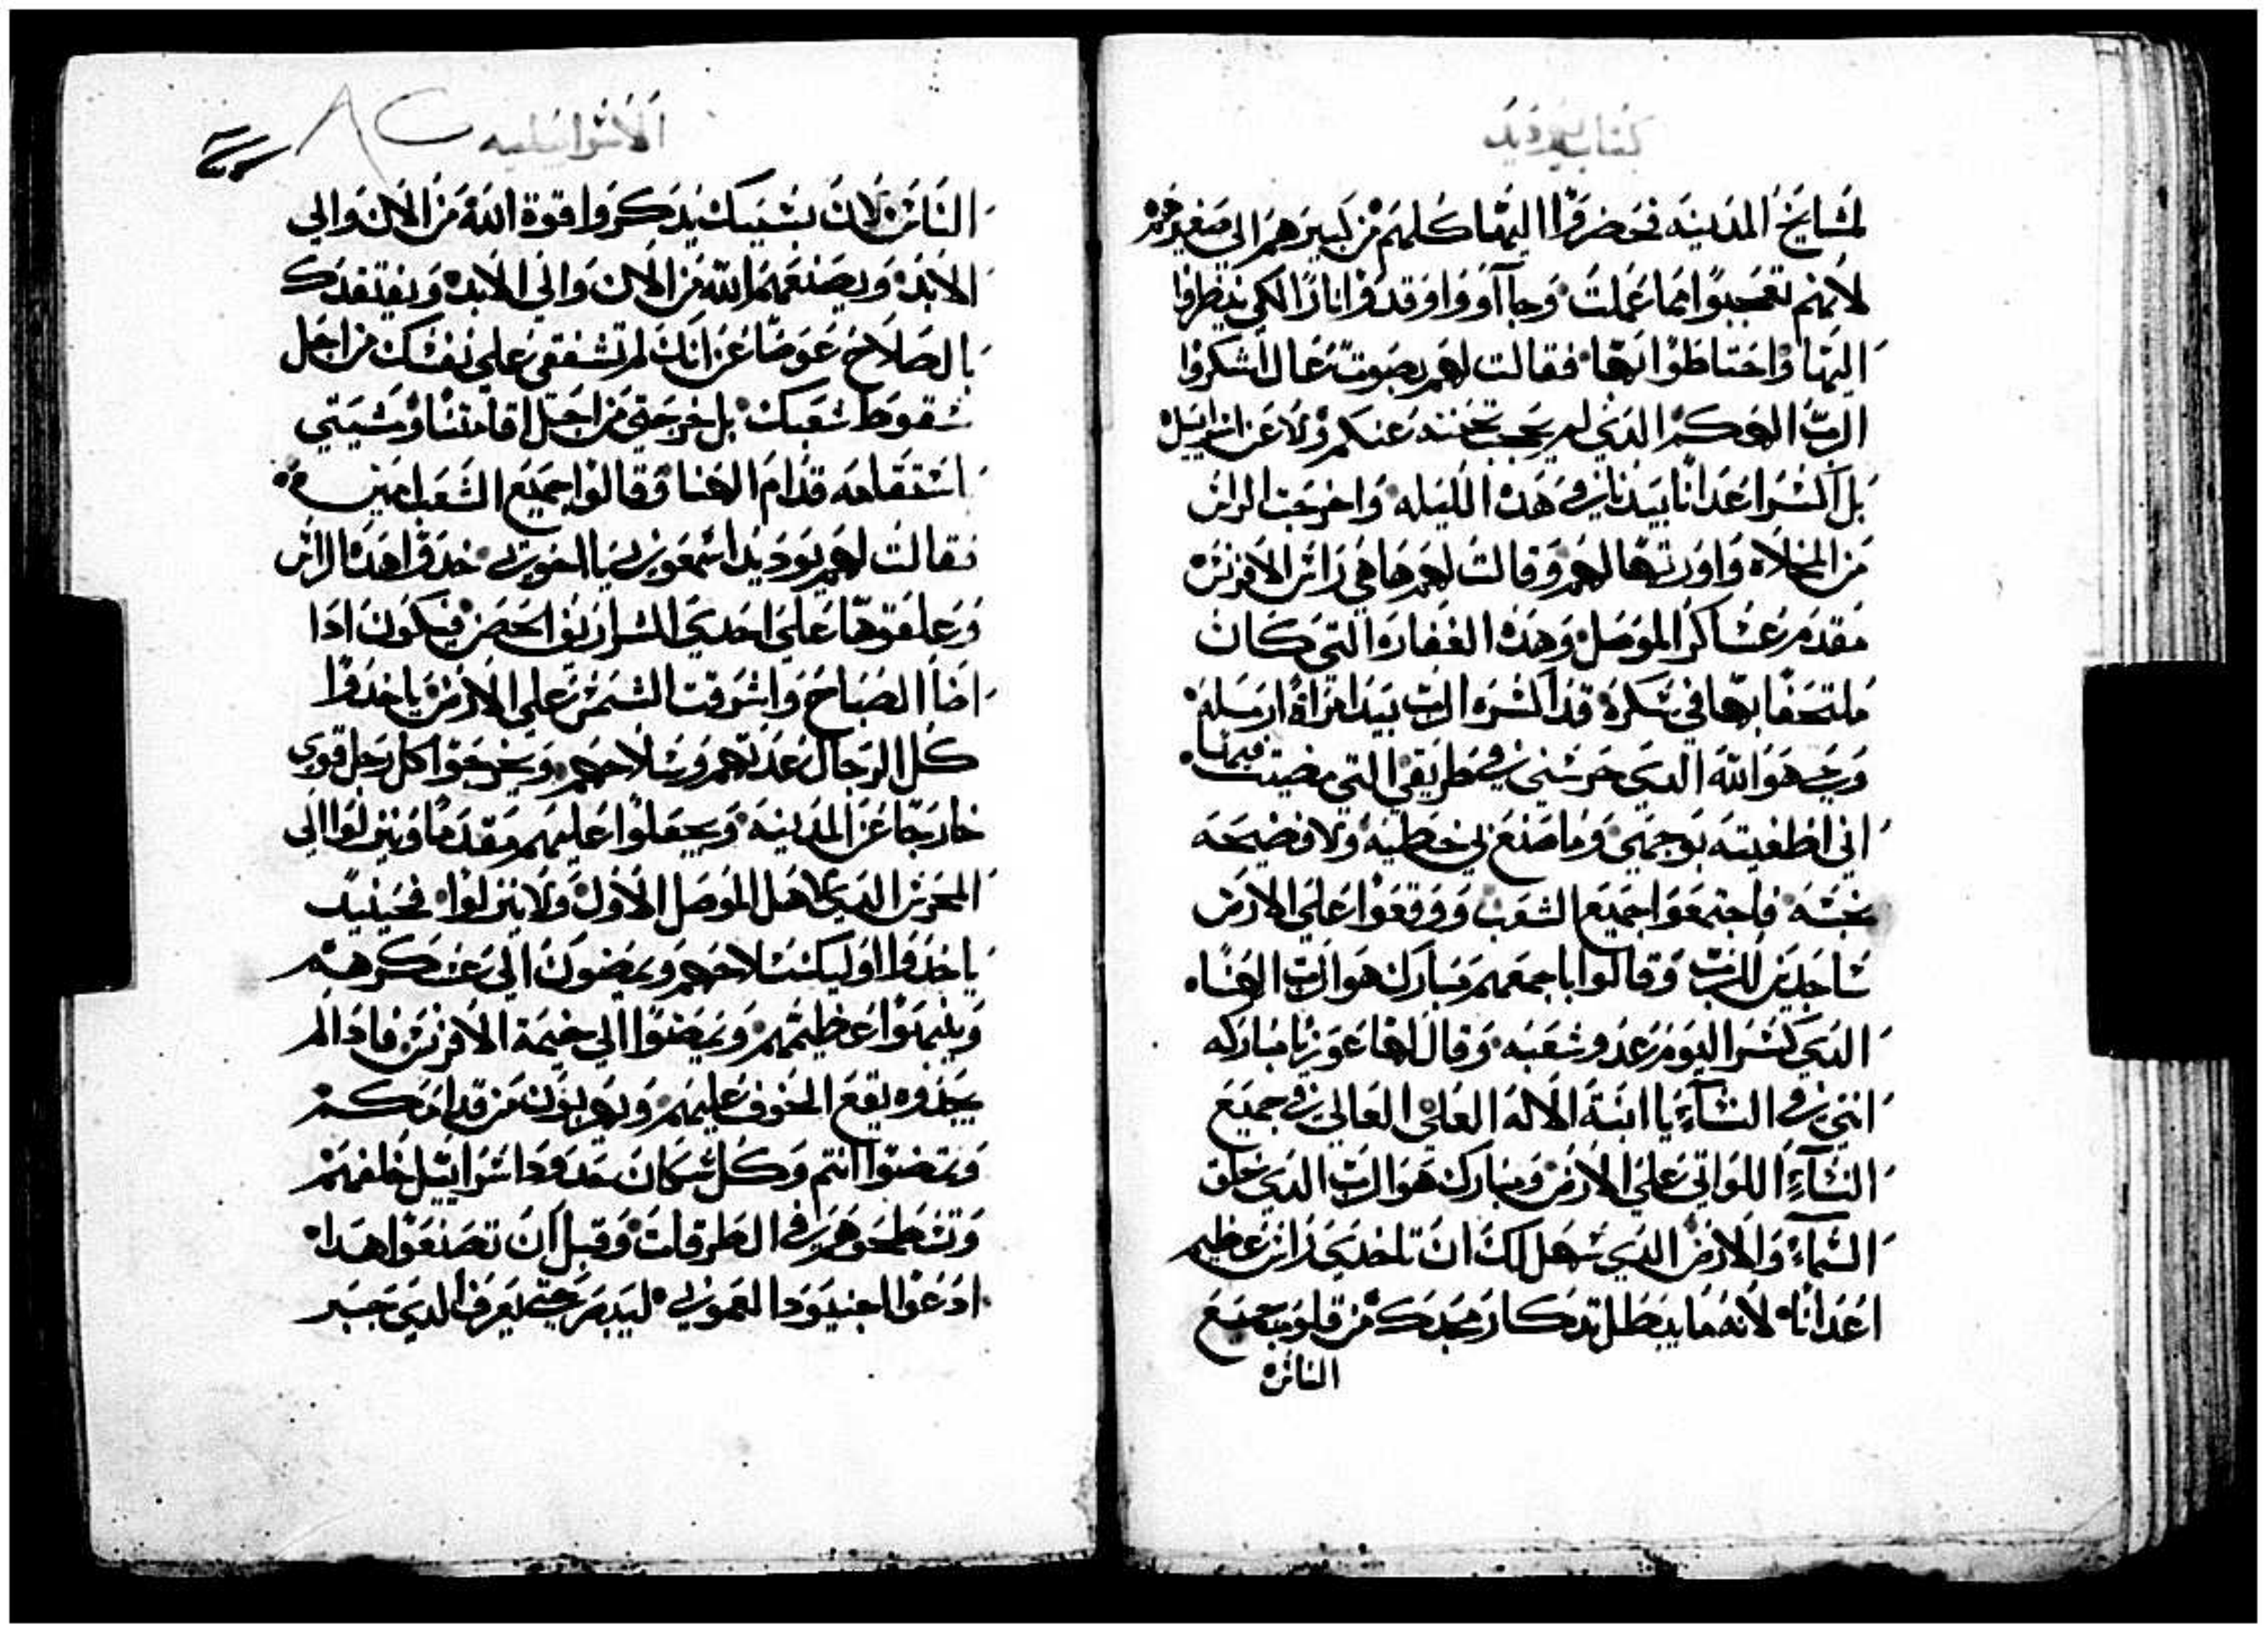 كتاب يهوديد
لمشايخ المدينه فحضروا اليها كلهم من كبيرهم الي صغيرهم
لانهم تعجبوا مما عملت وجاآووا واوقدوا نارًا لكي ينظروا
اليها واحتاطوا بها فقالت لهم بصوت عال اشكروا
الرب الهكم الدي لم يحجب تحننه عنكم ولا عن اسراييل
بل اكسر اعدانا بيدنا في هده الليله واخرجت الراس
من المخلاه واورتها لهم وقالت لهم ها هي راس الافرنس
مقدم عساكر الموصل وهده الغفاره التي كان
ملتحفا بها في سكره قد اكسره الرب بيد امراة ارمله
وحي هو الله الدي حرسني في طريقي التي مضيت فيها
اني اطغيته بوجهي وما صنع بي خطيه ولا فضيحه
نجسه فاجتمعوا جميع الشعب ووقعوا علي الارض
ساجدين للرب وقالوا باجمعهم مبارك هو الرب الهنا
الدي كسر اليوم عدو شعبه وقال لها عوزيا مباركه
انتي في النساء يا ابنة الاله العلي العالي في جميع
النساء اللواتي علي الارض ومبارك هو الرب الدي خلق
السماء والارض الدي سهل لك ان تاخدي راس عظيم
اعدانا لانه ما يبطل تدكار مجدك من قلوب جميع
الناس
الاسراييليه
٨٢
الناس لان بسببك يدكروا قوة الله من الان والي
الابد ويصنعهم الله من الان والي الابد ويفتقدك
بالصلاح عوضا عن انك لم تشفقي علي نفسك من اجل
سقوط شعبك بل خرجتي من اجل اقامتنا ومشيتي
استقامه قدام الهنا وقالوا جميع الشعب امين
فقالت لهم يوديد اسمعوني يا اخوتي خدوا هده الراس
وعلقوها علي احدي الشراريف الحصن فيكون ادا
اضا الصباح واشرقت الشمس علي الارض ياخدوا
كل الرجال عدتهم وسلاحهم ويخرجوا كل رجل قوي
خارجًا عن المدينه ويجعلوا عليهم مقدمًا وينزلوا الي
المحرس الدي لاهل الموصل الاول ولا ينزلوا فحينيد
ياخدوا اوليك سلاحهم ويمضون الي عسكرهم
وينبهوا عظيمهم ويمضوا الي خيمة الافرنس فادا لم
يجدوه يقع الخوف عليهم ويهربون من قدامكم
وتمضوا انتم وكل سكان حدود اسراييل خلفهم
وتسطحوهم في الطرقات وقبل ان تصنعوا هدا
ادعوا اجنيودا العموني ليبصر حتي يعرف الدي جسر